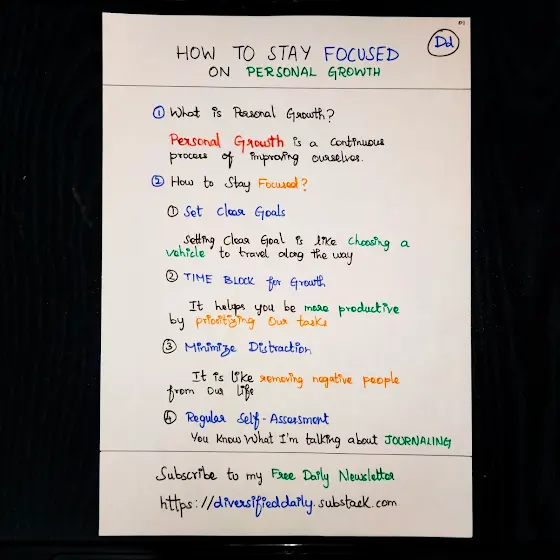 01
Dd
HOW TO STAY FOCUSED
ON PERSONAL GROWTH
① What is Personal Growth?
Personal Growth is a continuous
process of improving ourselves.
② How to Stay Focused?
① Set Clear Goals
Setting Clear Goal is like choosing a
vehicle to travel along the way
② TIME BLOCK for Growth
It helps you be more productive
by prioritizing Our tasks
③ Minimize Distraction
It is like removing negative people
from Our life
④ Regular Self-Assessment
You Know What I'm talking about JOURNALING
Subscribe to my Free Daily Newsletter
https://diversifieddaily.substack.com